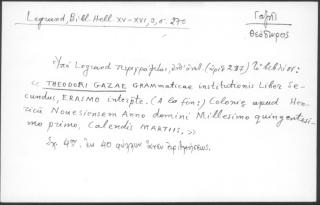 Legrand, Bibl. Hell. XV-XVI, 3, σ. 270
Γαζῆ
Θεόδωρος
Ὑπὸ Legrand περιγράφεται, (ἀριθ 287) τὸ βιβλίον:
« THEODORI GAZAE Grammaticae institutionis Liber Se-
cundus, ERASMO interprete. (A la fin:) Coloniae apud Hen-
ricũ Novesiensem Anno domini Millesimo quingentesi-
mo primo, Calendis MARTIIS. »
Σχ. 4ον. ἐκ 40 φύλλων ἄνευ ἀριθμήσεως.